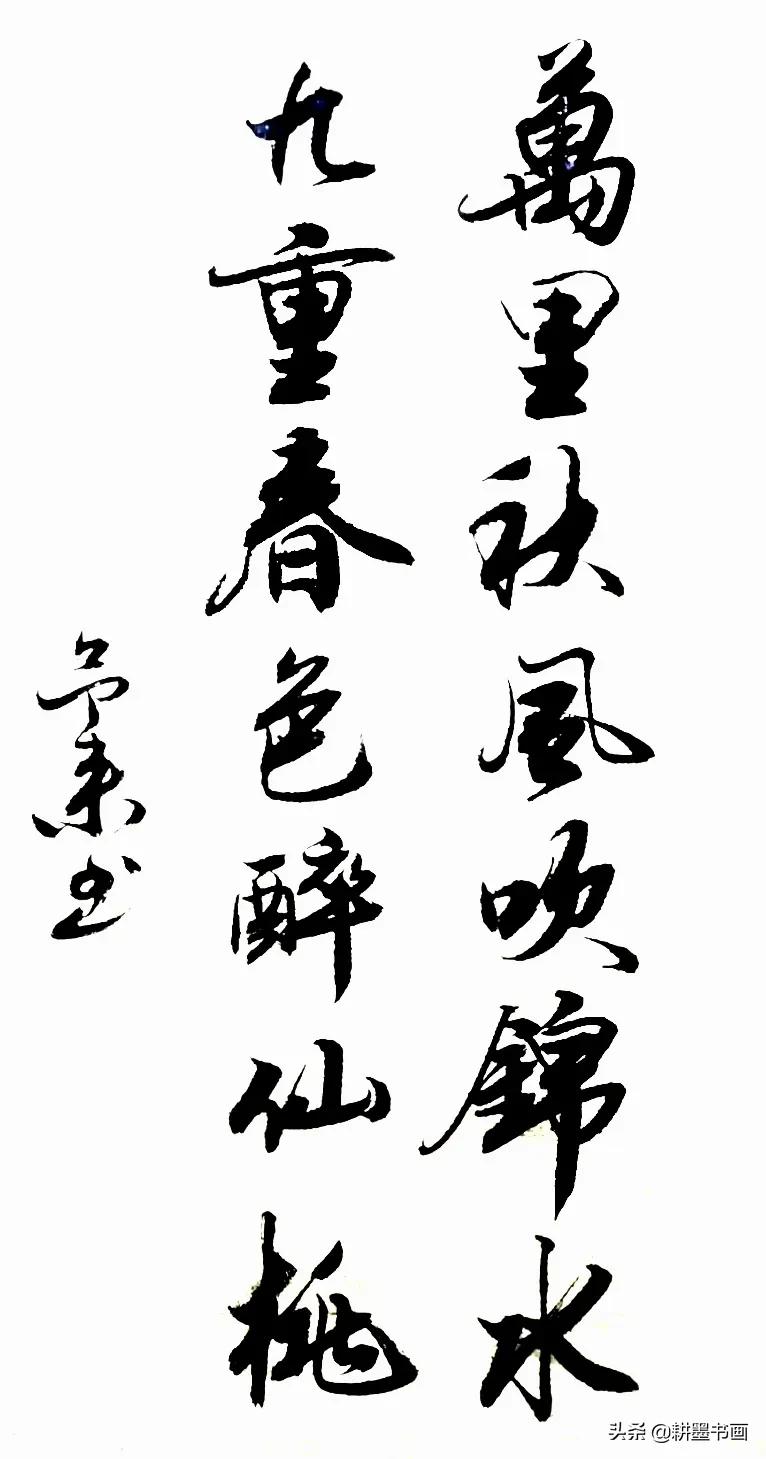 萬里秋風吹錦水
九重春色醉仙桃
书
头条 @耕墨书画